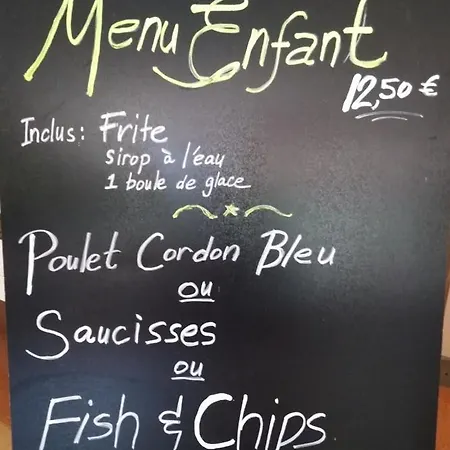 Menu Enfant
12,50 €
Inclus: Frite
Sirop à l'eau
1 boule de glace
Poulet Cordon Bleu
ou
Saucisses
ou
Fish & Chips